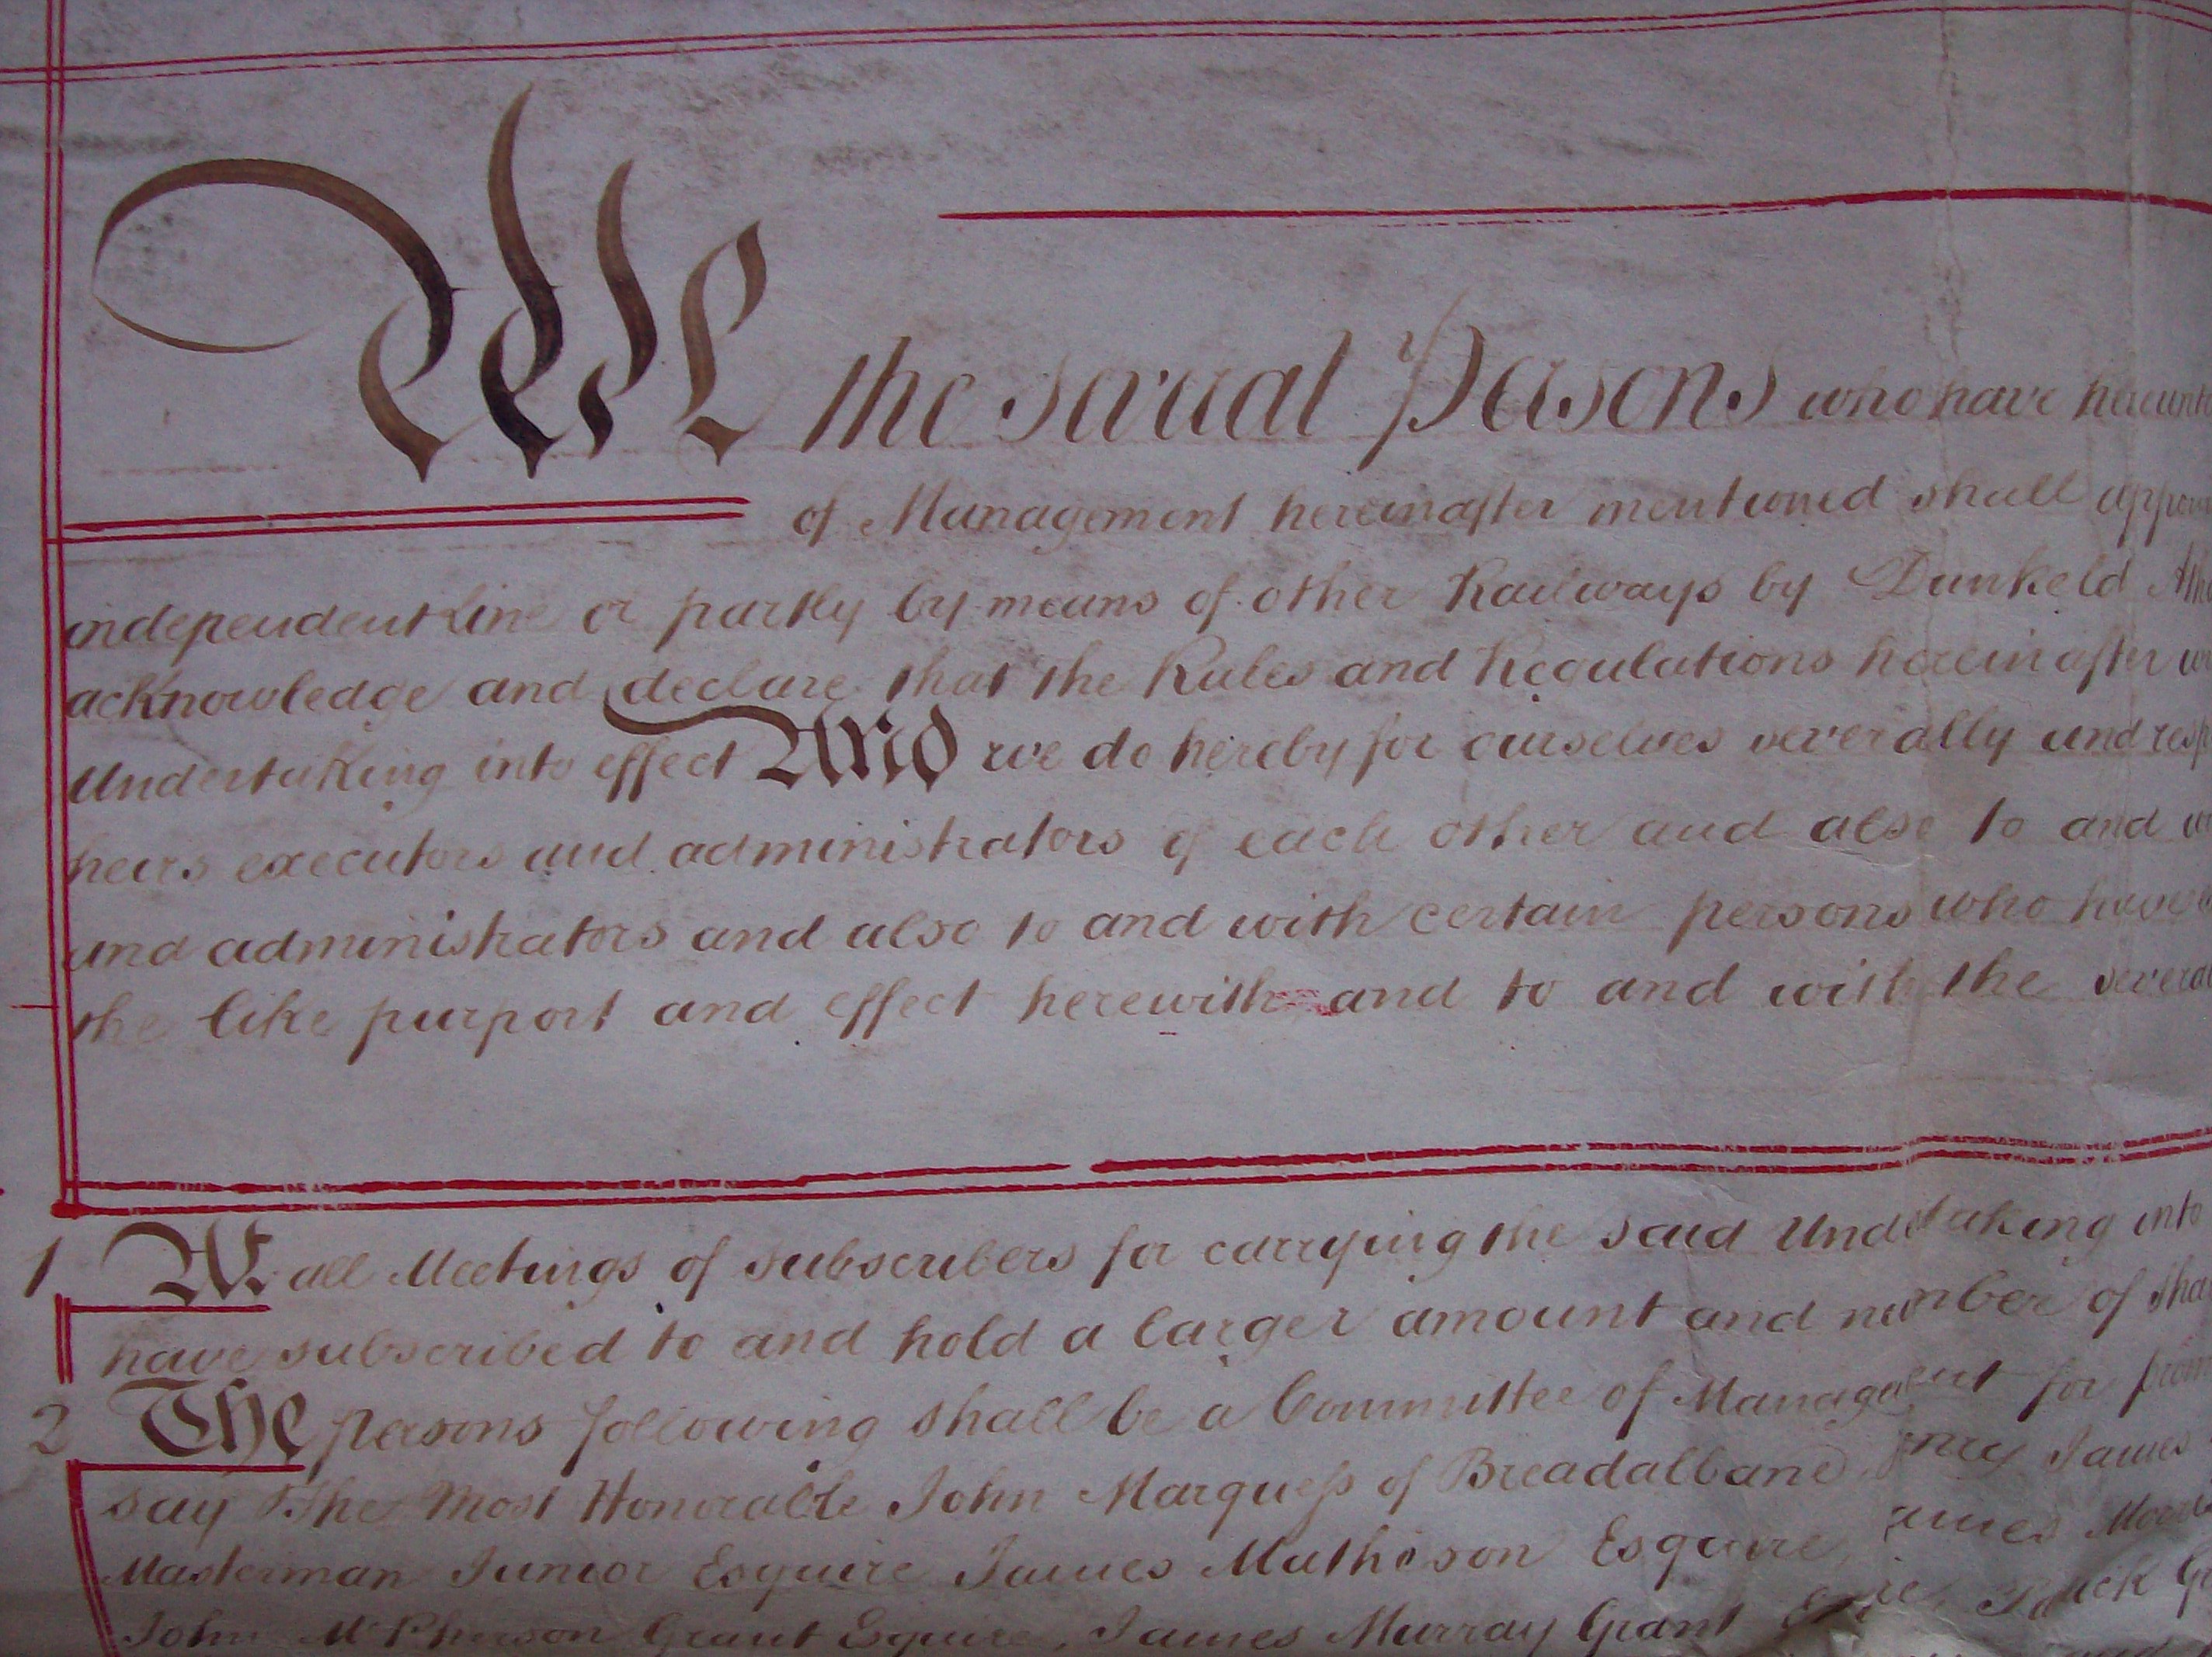 We the several Persons who have hereunto
of Management hereinafter mentioned shall
independent line or partly by means of other Railways by Dunkeld
acknowledge and declare that the Rules and Regulations hereinafter
Undertaking into effect And we do hereby for ourselves severally and
heirs executors and administrators of each other and also to and
and administrators and also to and with certain persons who have
the like purport and effect herewith and to and with the several
1 At all Meetings of subscribers for carrying the said Undertaking into
have subscribed to and hold a larger amount and number of
2 The persons following shall be a Committee of Management for
say The Most Honorable John Marquess of Breadalbane, James
Masterman Junior Esquire James Matheson Esquire, James
John McPherson Grant Esquire, James Murray Grant